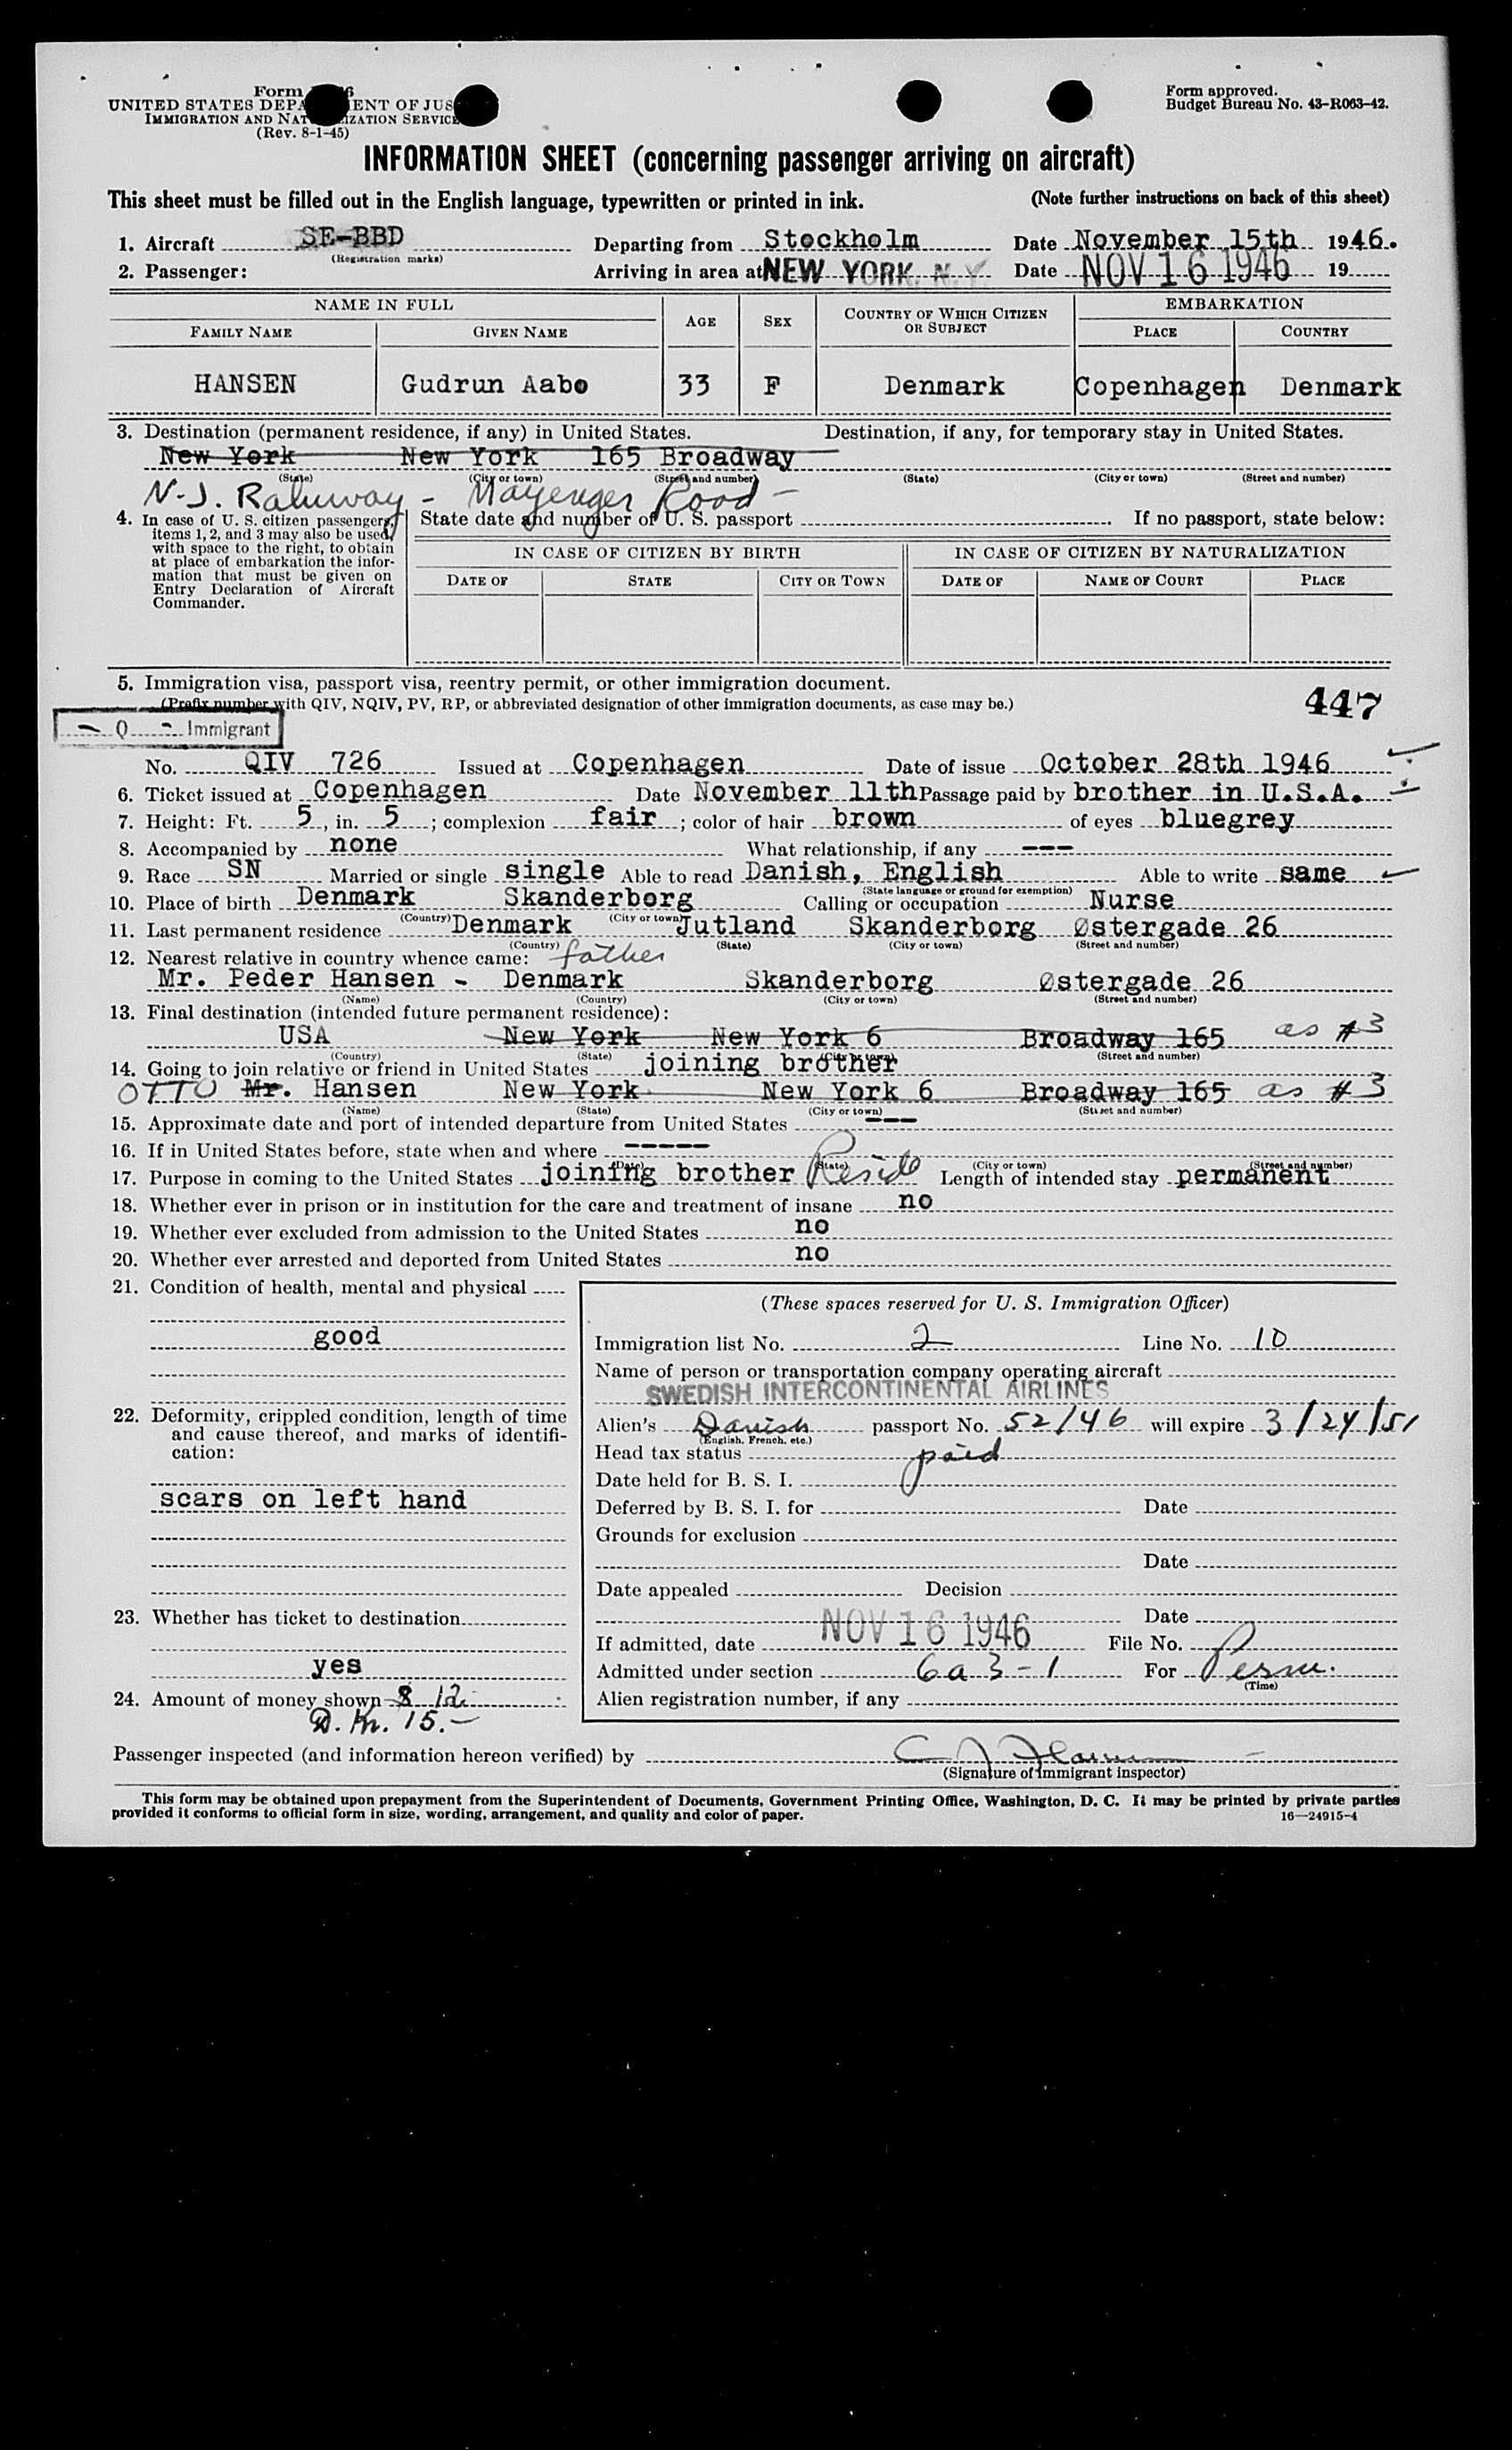 Form
UNITED STATES DEPA ENT OF JUS
IMMIGRATION AND NAT IZATION SERVICE
(Rev. 8-1-45)
Form approved.
Budget Bureau No. 43-R063-42.
INFORMATION SHEET (concerning passenger arriving on aircraft)
This sheet must be filled out in the English language, typewritten or printed in ink. (Note further instructions on back of this sheet)
1. Aircraft SE-BBD Departing from Stockholm Date November 15th 1946.
(Registration marks)
2. Passenger: Arriving in area at NEW YORK, N.Y. Date NOV 16 1946 19
NAME IN FULL AGE SEX COUNTRY OF WHICH CITIZEN OR SUBJECT EMBARKATION
FAMILY NAME GIVEN NAME PLACE COUNTRY
HANSEN Gudrun Aabo 33 F Denmark Copenhagen Denmark
3. Destination (permanent residence, if any) in United States. Destination, if any, for temporary stay in United States.
New York New York 165 Broadway
(State) (City or town) (Street and number) (State) (City or town) (Street and number)
N-J. Rahway - Road -
4. In case of U. S. citizen passengers, items 1, 2, and 3 may also be used, with space to the right, to obtain at place of embarkation the information that must be given on Entry Declaration of Aircraft Commander.
State date and number of U. S. passport If no passport, state below:
IN CASE OF CITIZEN BY BIRTH IN CASE OF CITIZEN BY NATURALIZATION
DATE OF STATE CITY OR TOWN DATE OF NAME OF COURT PLACE
5. Immigration visa, passport visa, reentry permit, or other immigration document.
(Prefix number with QIV, NQIV, PV, RP, or abbreviated designation of other immigration documents, as case may be.) 447
Q - Immigrant
No. QIV 726 Issued at Copenhagen Date of issue October 28th 1946
6. Ticket issued at Copenhagen Date November 11th Passage paid by brother in U.S.A.
7. Height: Ft. 5, in. 5; complexion fair; color of hair brown of eyes bluegrey
8. Accompanied by none What relationship, if any ---
9. Race SN Married or single single Able to read Danish, English Able to write same
(State language or ground for exemption)
10. Place of birth Denmark Skanderborg Calling or occupation Nurse
(Country) (City or town)
11. Last permanent residence Denmark Jutland Skanderborg Østergade 26
(Country) (State) (City or town) (Street and number)
12. Nearest relative in country whence came: father
Mr. Peder Hansen - Denmark Skanderborg Østergade 26
(Name) (Country) (City or town) (Street and number)
13. Final destination (intended future permanent residence):
USA New York New York 6 Broadway 165 as #3
(Country) (State) (City or town) (Street and number)
14. Going to join relative or friend in United States joining brother
OTTO Mr. Hansen New York New York 6 Broadway 165 as #3
(Name) (State) (City or town) (Street and number)
15. Approximate date and port of intended departure from United States ---
16. If in United States before, state when and where -----
(Date) (State) (City or town) (Street and number)
17. Purpose in coming to the United States joining brother Reside Length of intended stay permanent
18. Whether ever in prison or in institution for the care and treatment of insane no
19. Whether ever excluded from admission to the United States no
20. Whether ever arrested and deported from United States no
21. Condition of health, mental and physical
good
22. Deformity, crippled condition, length of time and cause thereof, and marks of identification:
scars on left hand
23. Whether has ticket to destination
yes
24. Amount of money shown $ 12
D. Kr. 15.-
(These spaces reserved for U. S. Immigration Officer)
Immigration list No. 2 Line No. 10
Name of person or transportation company operating aircraft
SWEDISH INTERCONTINENTAL AIRLINES
Alien's Danish passport No. 52/46 will expire 3/24/51
(English, French, etc.)
Head tax status paid
Date held for B. S. I.
Deferred by B. S. I. for Date
Grounds for exclusion
Date
Date appealed Decision
Date
If admitted, date NOV 16 1946 File No.
Admitted under section 6a3-1 For Perm.
(Time)
Alien registration number, if any
Passenger inspected (and information hereon verified) by
(Signature of immigrant inspector)
This form may be obtained upon prepayment from the Superintendent of Documents, Government Printing Office, Washington, D. C. It may be printed by private parties
provided it conforms to official form in size, wording, arrangement, and quality and color of paper. 16—24915-4